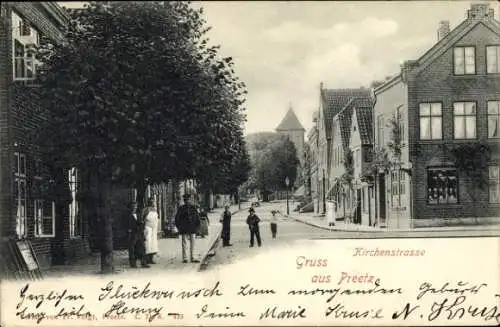 Kirchenstrasse
Gruss
aus Preetz.
Herzlichen Glückwunsch zum morgenden Geburtstag
Henny deine Marie Kruse N. Kruse